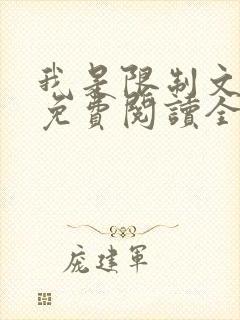 我是限制文
免費閱讀全
庞建军